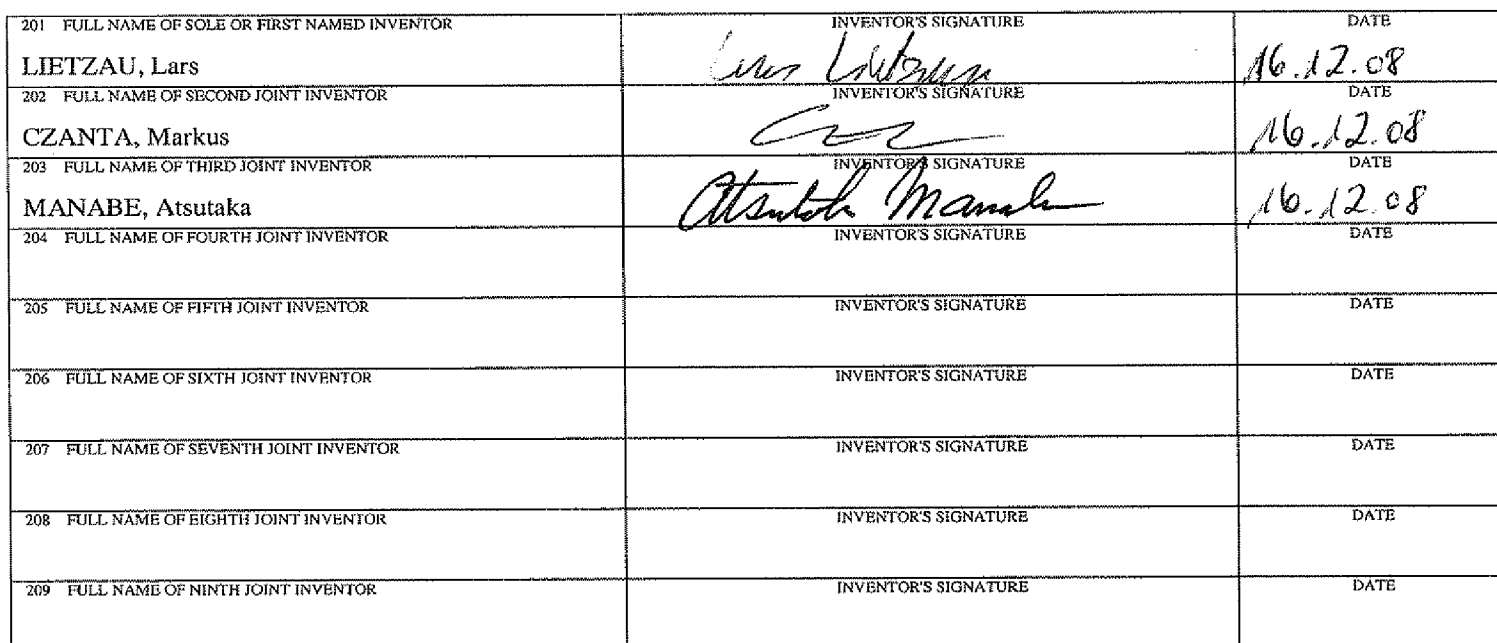 201 FULL NAME OF SOLE OR FIRST NAMED INVENTOR INVENTOR'S SIGNATURE DATE
LIETZAU, Lars Lars Lietzau 16.12.08
202 FULL NAME OF SECOND JOINT INVENTOR INVENTOR'S SIGNATURE DATE
CZANTA, Markus 16.12.08
203 FULL NAME OF THIRD JOINT INVENTOR INVENTOR'S SIGNATURE DATE
MANABE, Atsutaka 16.12.08
204 FULL NAME OF FOURTH JOINT INVENTOR INVENTOR'S SIGNATURE DATE
205 FULL NAME OF FIFTH JOINT INVENTOR INVENTOR'S SIGNATURE DATE
206 FULL NAME OF SIXTH JOINT INVENTOR INVENTOR'S SIGNATURE DATE
207 FULL NAME OF SEVENTH JOINT INVENTOR INVENTOR'S SIGNATURE DATE
208 FULL NAME OF EIGHTH JOINT INVENTOR INVENTOR'S SIGNATURE DATE
209 FULL NAME OF NINTH JOINT INVENTOR INVENTOR'S SIGNATURE DATE